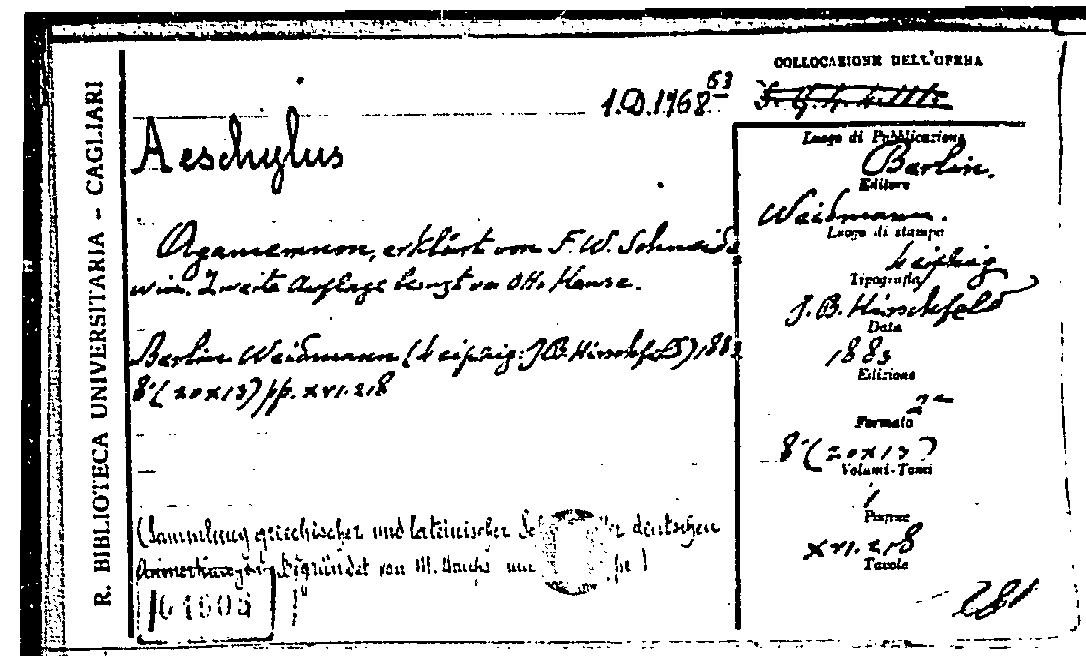 R. BIBLIOTECA UNIVERSITARIA - CAGLIARI
COLLOCAZIONE DELL'OPERA
1.D.1768 63
Aeschylus
Agamemnon, erklärt von F.W. Schneide
win. Zweite Auflage besorgt von Otto Hense.
Berlin Weidmann (Leipzig: J.B. Hirschfeld) 1883
8°(20x13) pp. XVI.218
(Sammlung griechischer und lateinischer deutschen
Anmerkungen begründet von M. Haupt und
Luogo di Pubblicazione
Berlin.
Editore
Weidmann.
Luogo di stampa
Leipzig
Tipografia
J.B. Hirschfeld
Data
1883
Edizione
2a
Formato
8°(20x13)
Volumi-Tomi
1
Pagine
XVI.218
Tavole
281